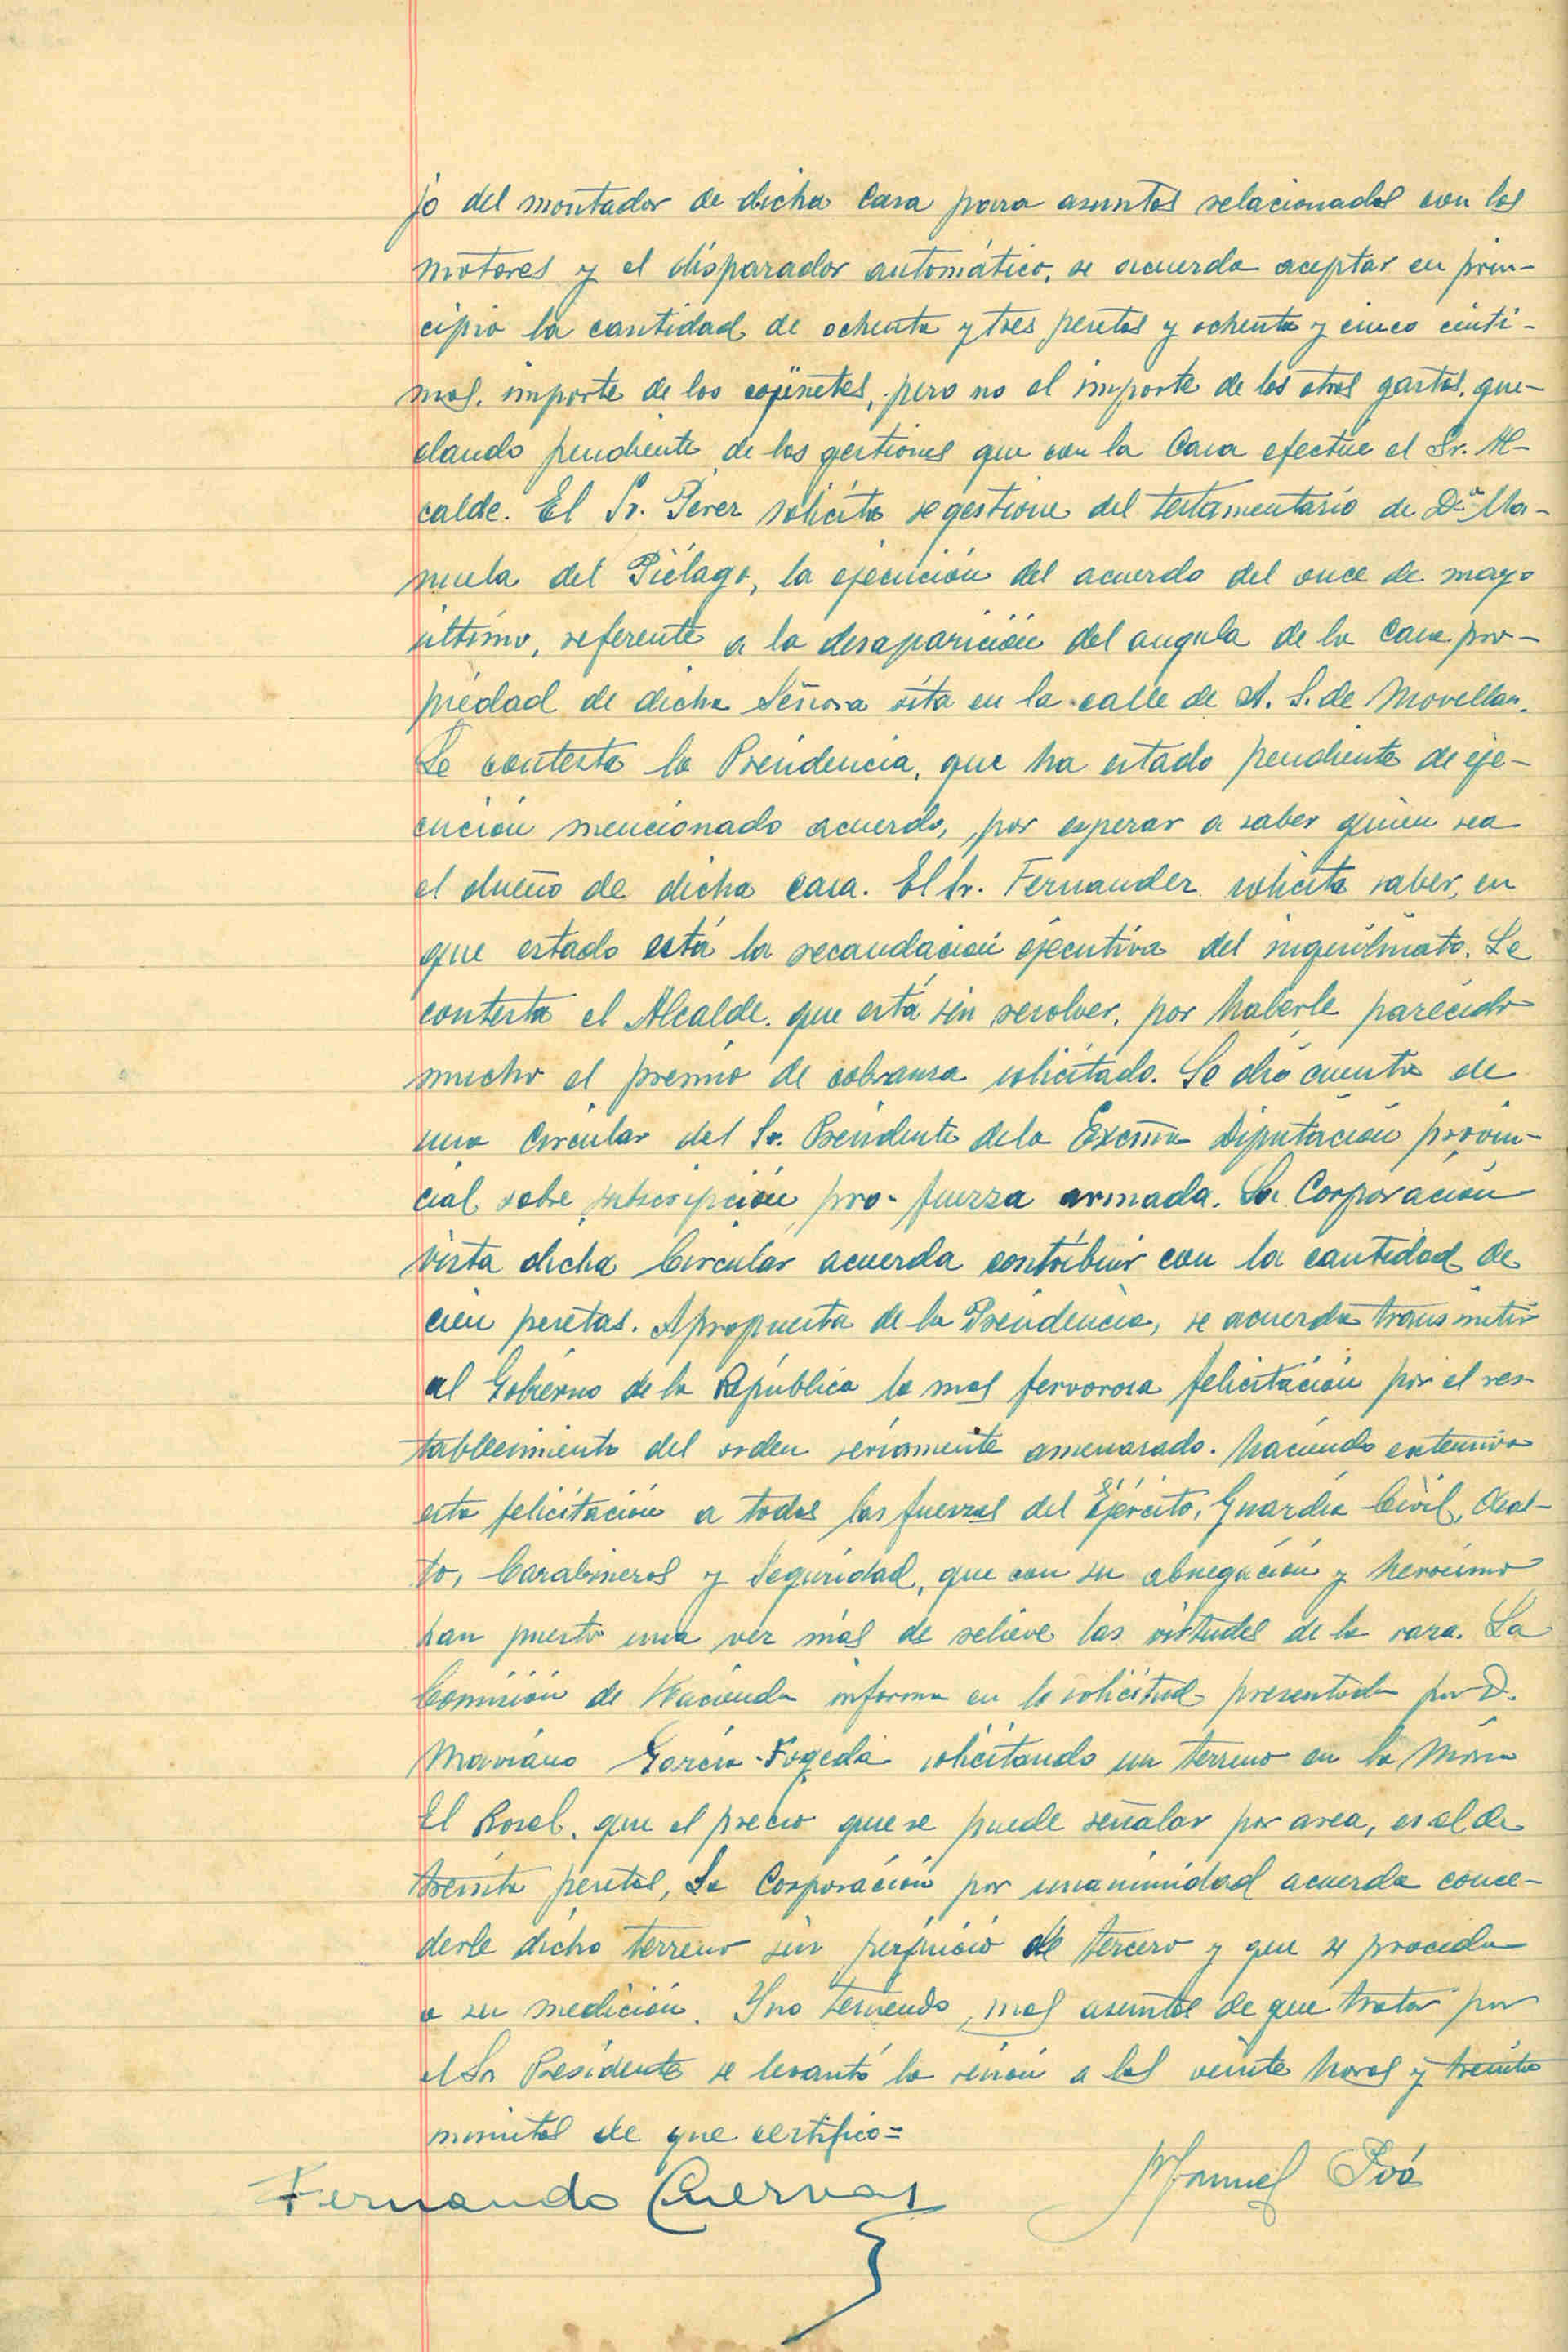 jo del montador de dicha Casa para asuntos relacionados con los
motores y el disparador automático, se acuerda aceptar en prin-
cipio la cantidad de ochenta y tres pesetas y ochenta y cinco cénti-
mos, importe de los cojinetes, pero no el importe de los otros gastos, que-
dando pendiente de las gestiones que con la Casa efectúe el Sr. Al-
calde. El Sr. Pérez solicita se gestione del testamentario de Dª Ma-
nuela del Piélago, la ejecución del acuerdo del once de mayo
último, referente a la desaparición del angulo de la casa pro-
piedad de dicha Señora sita en la calle de A. S. de Movellan.
Le contesta la Presidencia, que ha estado pendiente de eje-
cución mencionado acuerdo, por esperar a saber quien sea
el dueño de dicha casa. El Sr. Fernandez solicita saber, en
que estado está la recaudación ejecutiva del inquilinato. Le
contesta el Alcalde, que está sin resolver, por haberle parecido
mucho el premio de cobranza solicitado. Se dió cuenta de
una Circular del Sr. Presidente de la Excma Diputación provin-
cial sobre subscripción pro-fuerza armada. La Corporación
vista dicha Circular acuerda contribuir con la cantidad de
cien pesetas. A propuesta de la Presidencia, se acuerda transmitir
al Gobierno de la República la mas fervorosa felicitación por el res-
tablecimiento del orden seriamente amenazado, haciendo extensiva
esta felicitación a todas las fuerzas del Ejército, Guardia Civil, Asal-
to, Carabineros y Seguridad, que con su abnegación y heroismo
han puesto una vez más de relieve las virtudes de la raza. La
Comisión de Hacienda informa en la solicitud presentada por D.
Mariano García solicitando un terreno en la
El Rosal, que el precio que se puede señalar por area, es el de
treinta pesetas, La Corporación por unanimidad acuerda conce-
derle dicho terreno sin perjuicio de tercero y que se proceda
a su medición. Y no teniendo mas asuntos de que tratar por
el Sr Presidente se levantó la sesión a las veinte horas y treinta
minutos de que certifico=
Fernando Cuevas
Manuel